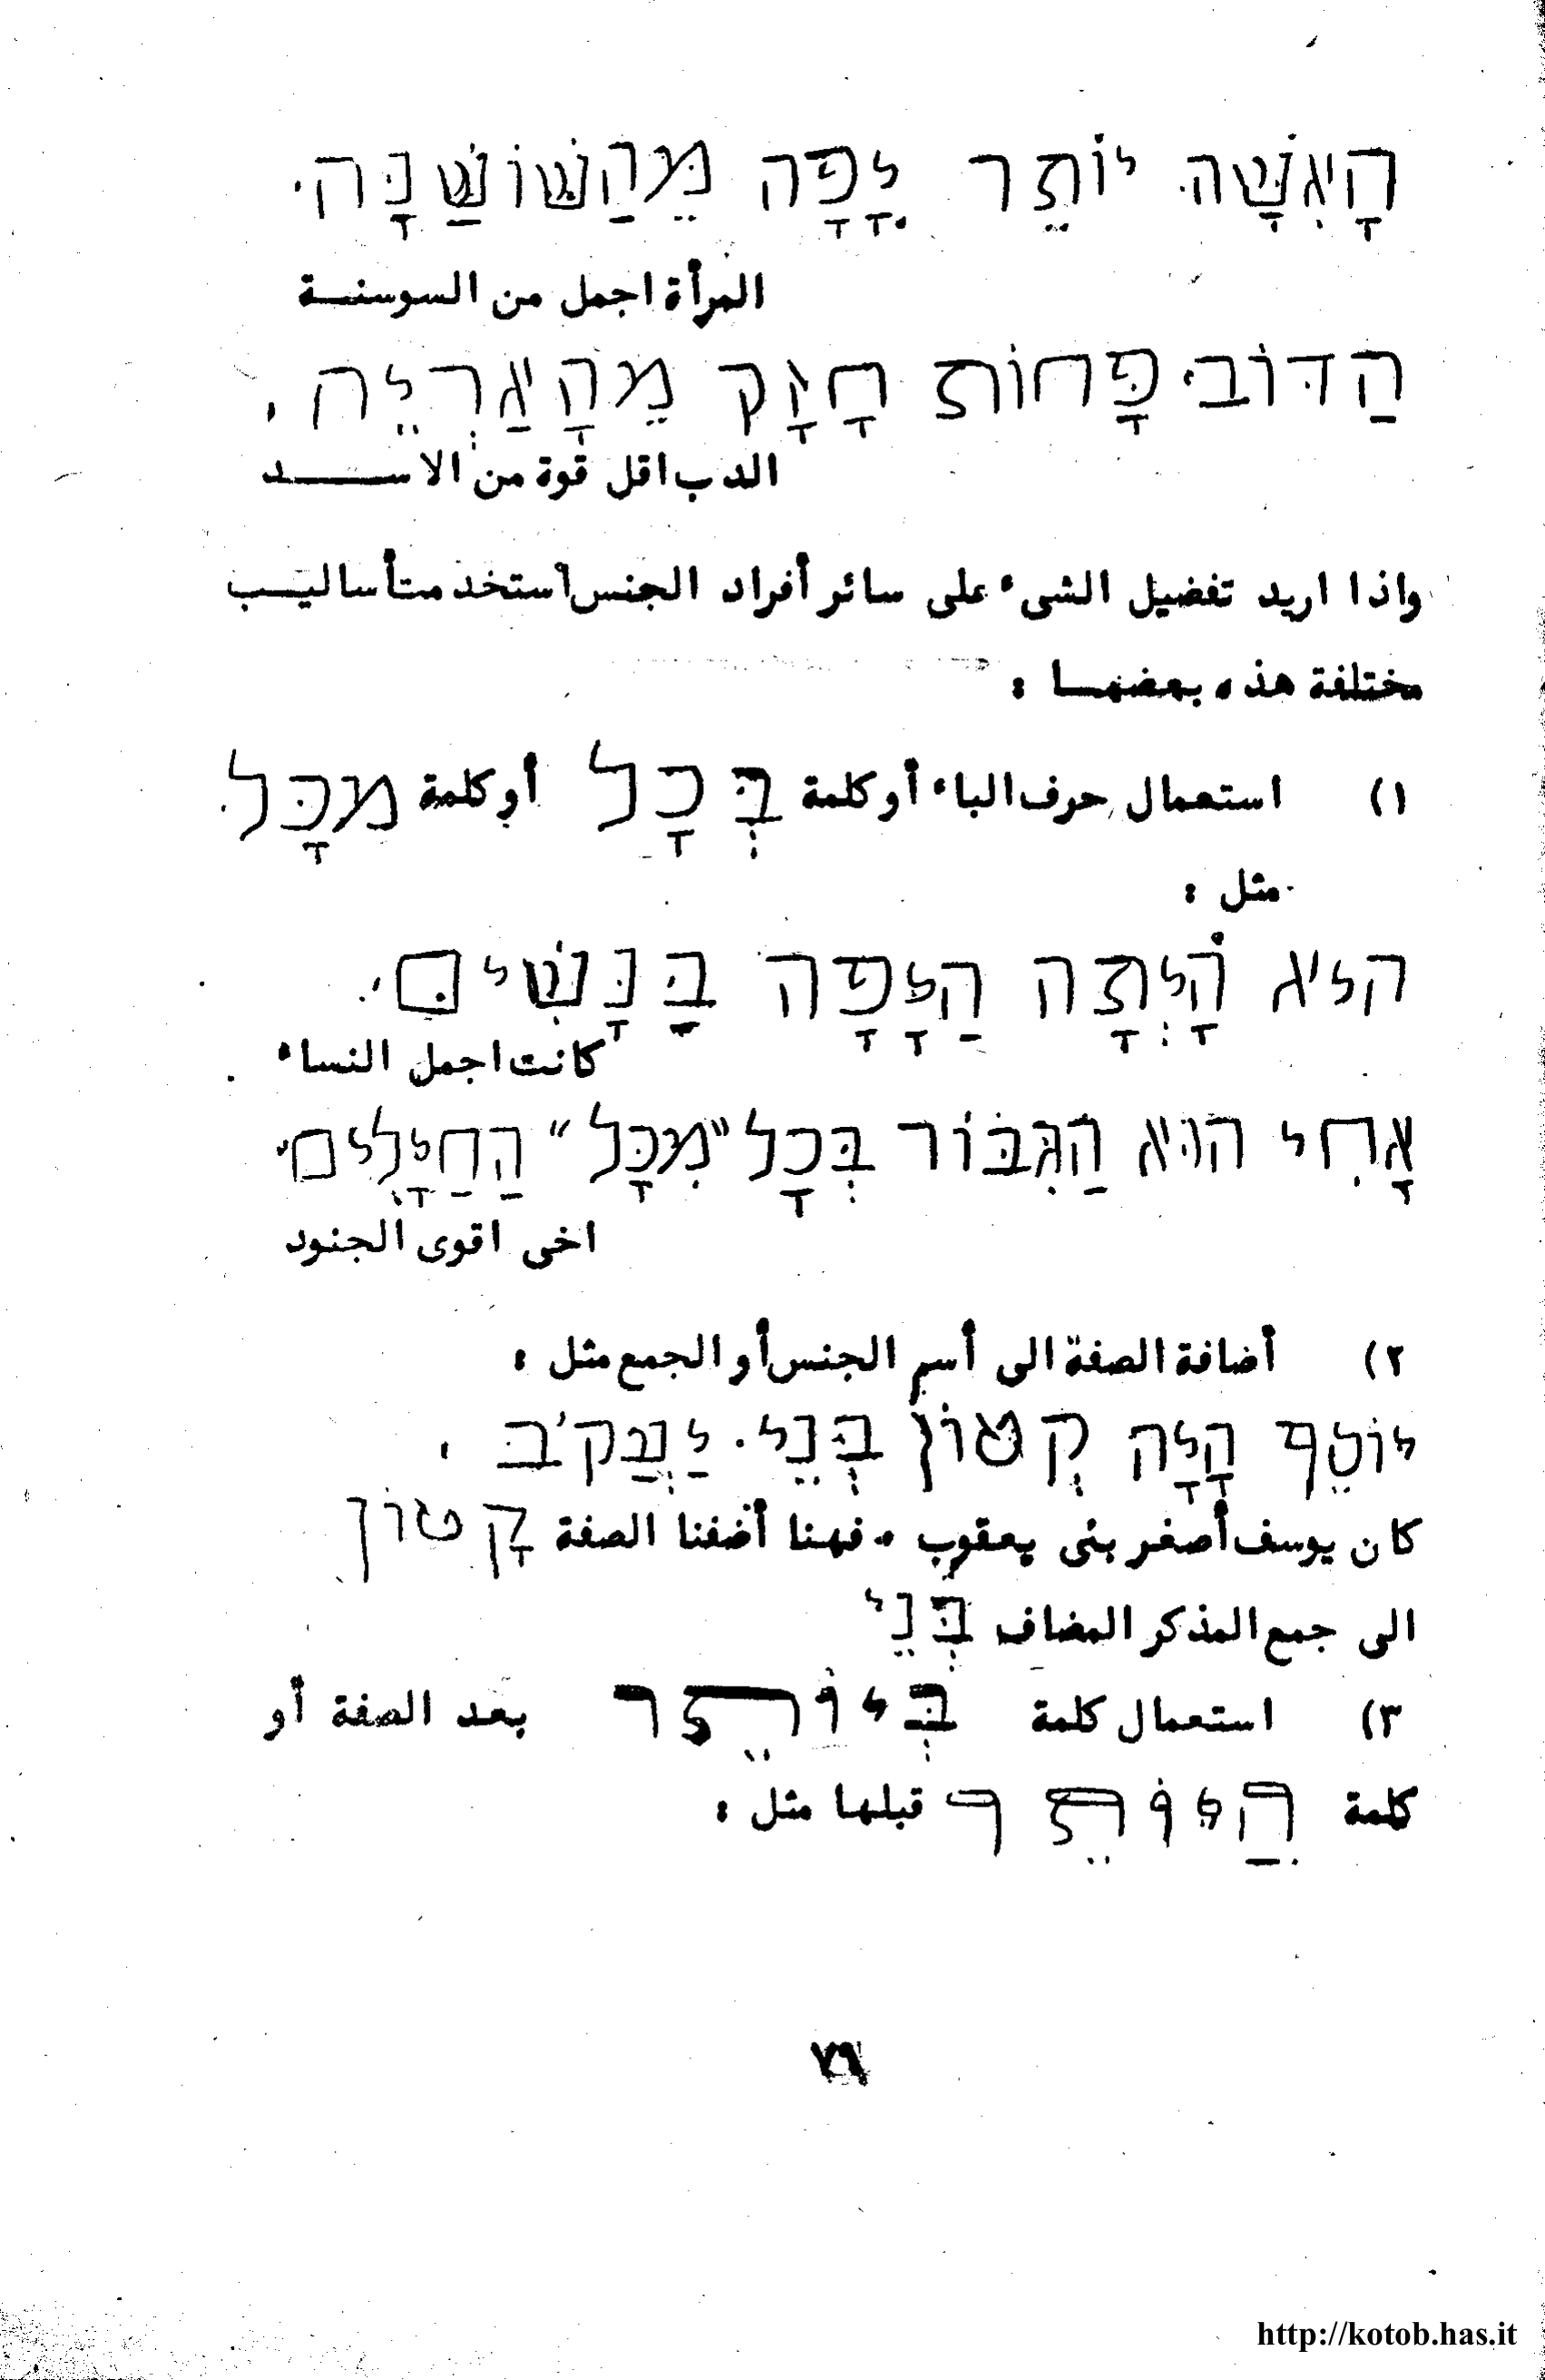 הָאִשָּׁה יוֹתֵר יָפָה מֵהַשּׁוֹשַׁנָּה.
المرأة اجمل من السوسنــة
הַדּוֹב פָּחוֹת חָזָק מֵהָאַרְיֵה.
الدب اقل قوة من الاســــد
واذا اريد تفضيل الشىء على سائر أفراد الجنس أستخدمت أساليــب
مختلفة هذه بعضهــا :
١) استعمال حرف الباء أو كلمة בְּכָל أو كلمة מכָּל
مثل :
הִיא הָיְתָה הַיָּפָה בַּנָּשִׁים.
كانت اجمل النساء
אָחִי הוּא הַגִּבּוֹר בְּכָל "מִכָּל" הַחַיָלִים.
اخى اقوى الجنود
٢) أضافة الصفة الى أسم الجنس أو الجمع مثل :
יוֹסֵף הָיָה קְטוֹן בְּנֵי יַעֲקֹב.
كان يوسف أصغر بنى يعقوب . فهنا أضفنا الصفة קָטוֹן
الى جمع المذكر المضاف בְּנֵי
٣) استعمال كلمة בְּיוֹתֵר بعد الصفة أو
كلمة הַיּוֹתֵר قبلها مثل :
٧٩
http://kotob.has.it